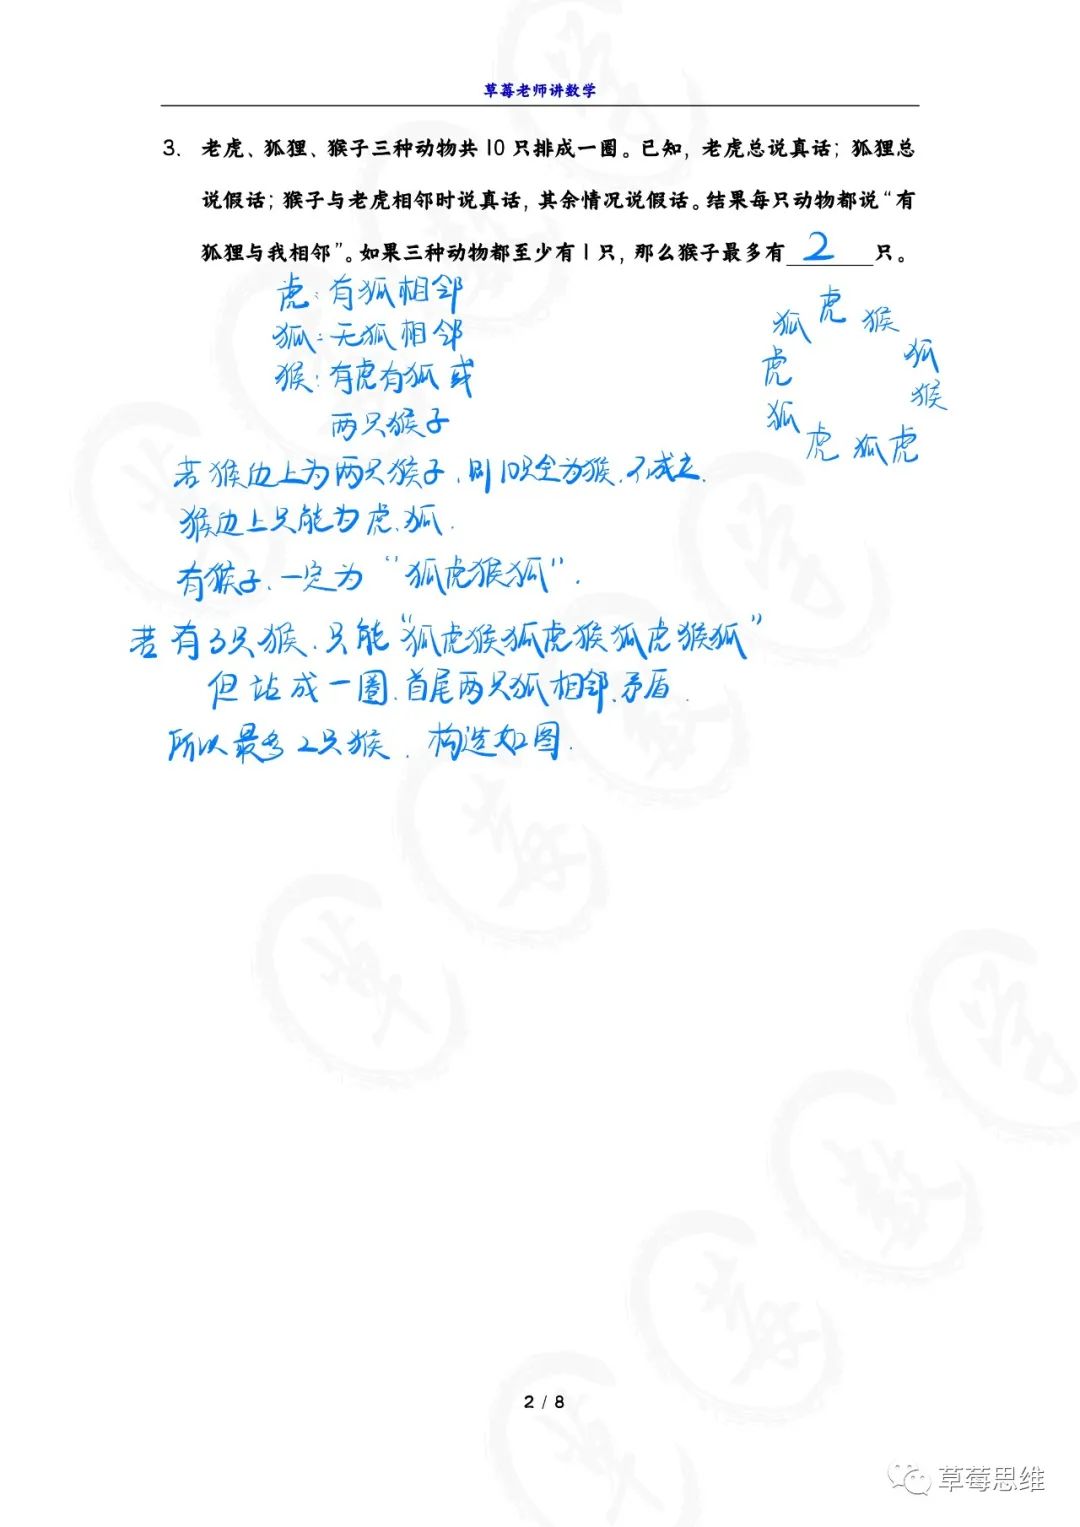 草莓老师讲数学
3. 老虎、狐狸、猴子三种动物共10只排成一圈。已知，老虎总说真话；狐狸总
说假话；猴子与老虎相邻时说真话，其余情况说假话。结果每只动物都说“有
狐狸与我相邻”。如果三种动物都至少有1只，那么猴子最多有 2 只。
虎：有狐相邻
狐：无狐相邻
猴：有虎有狐或
两只猴子
虎
狐 猴
虎 狐
猴
狐
虎 狐虎
若猴边上为两只猴子，则10只全为猴，不成立.
猴边上只能为虎、狐.
有猴子，一定为“狐虎猴狐”.
若有3只猴，只能“狐虎猴狐虎猴狐虎猴狐”
但站成一圈，首尾两只狐相邻，矛盾.
所以最多2只猴，构造如图.
2 / 8
草莓思维